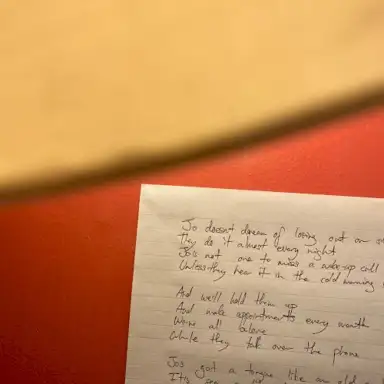 Jo doesn't dream of losing out on
They do it almost every night
Jo's not one to miss a wake-up call
Unless they hear it in the cold morning
And we'll hold them up
And make appointments every month
We're all
While they talk over the phone
Jos got a tongue like an old